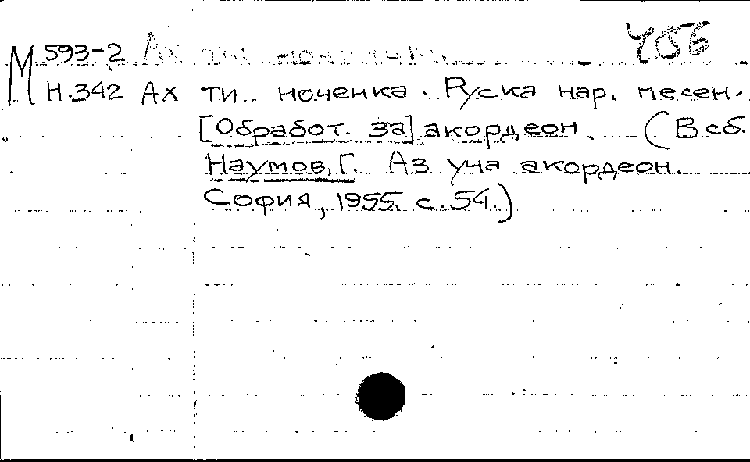 М 593-2 Ах ти ноченка 456
Н.342 Ах ти.. ноченка. Руска нар. песен.
[Обработ. за] акордеон. (В сб.
Наумов, Г. Аз уча акордеон.
София, 1955. с. 54.)